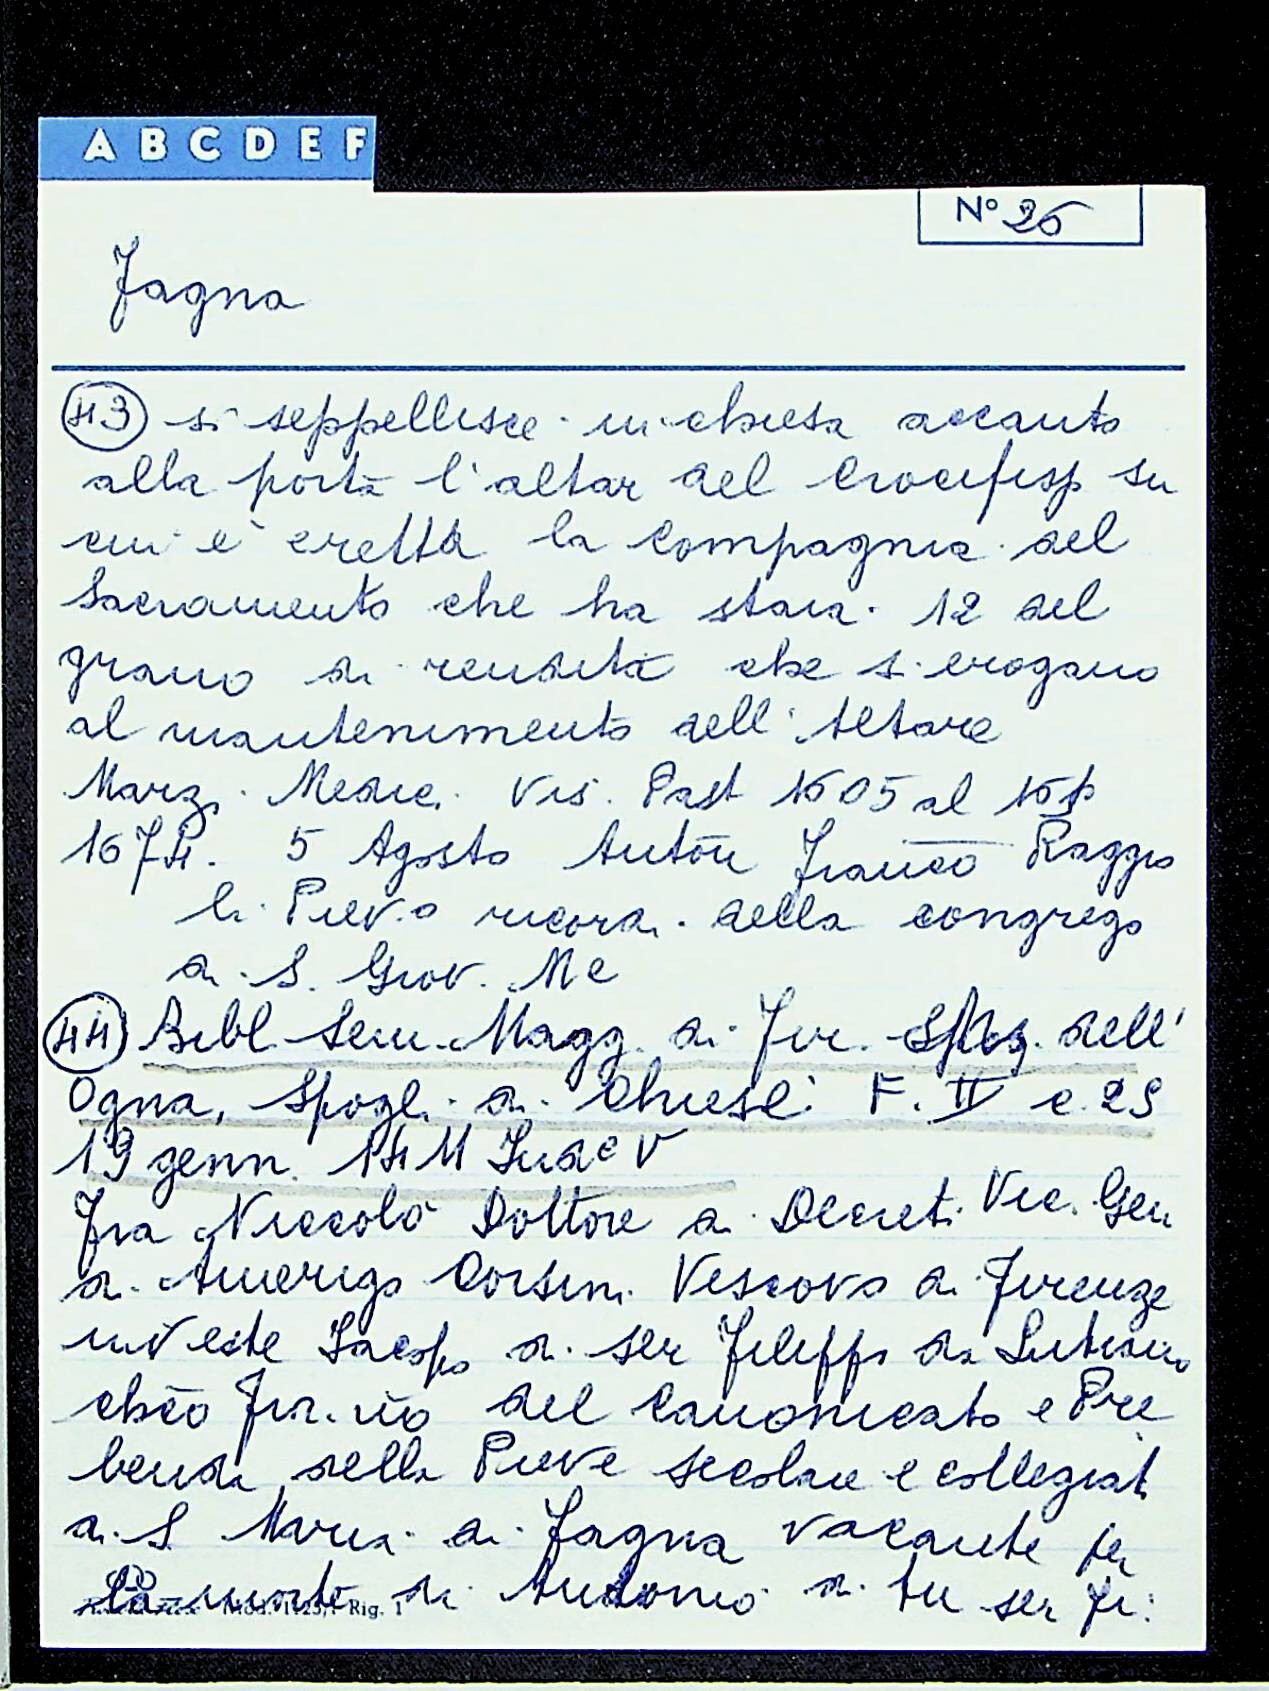 A B C D E F
Nº 26
Fagna
43 si seppellisce in chiesa accanto
alla porta l'altar del Crocifisso su
cui è eretta la Compagnia del
Sacramento che ha staia 12 del
grano di rendita che si erogano
al mantenimento dell'Altare
Marz. Medic. Vis. Past 1605 al
1674. 5 Agosto Anton Franco Raggio
li Piev.o ricorda della congrega
di S. Giov. M e
44 Bibl Sem. Magg. di Fir. Spog. dell'
Ogna, Spogl. di Chiese F. II c. 29
19 genn. 1411 Ind e V
Fra Niccolò Dottore di Decreti Vic. Gen
di Amerigo Corsini Vescovo di Firenze
investe Iacopo di ser Filippo da Lutiano
chco Fir.no del Canonicato e Pre
benda della Pieve secolare e collegiat
di S. Maria di Fagna vacante per
la morte di Antonio di ser Fr:
Mod. Rig. 1